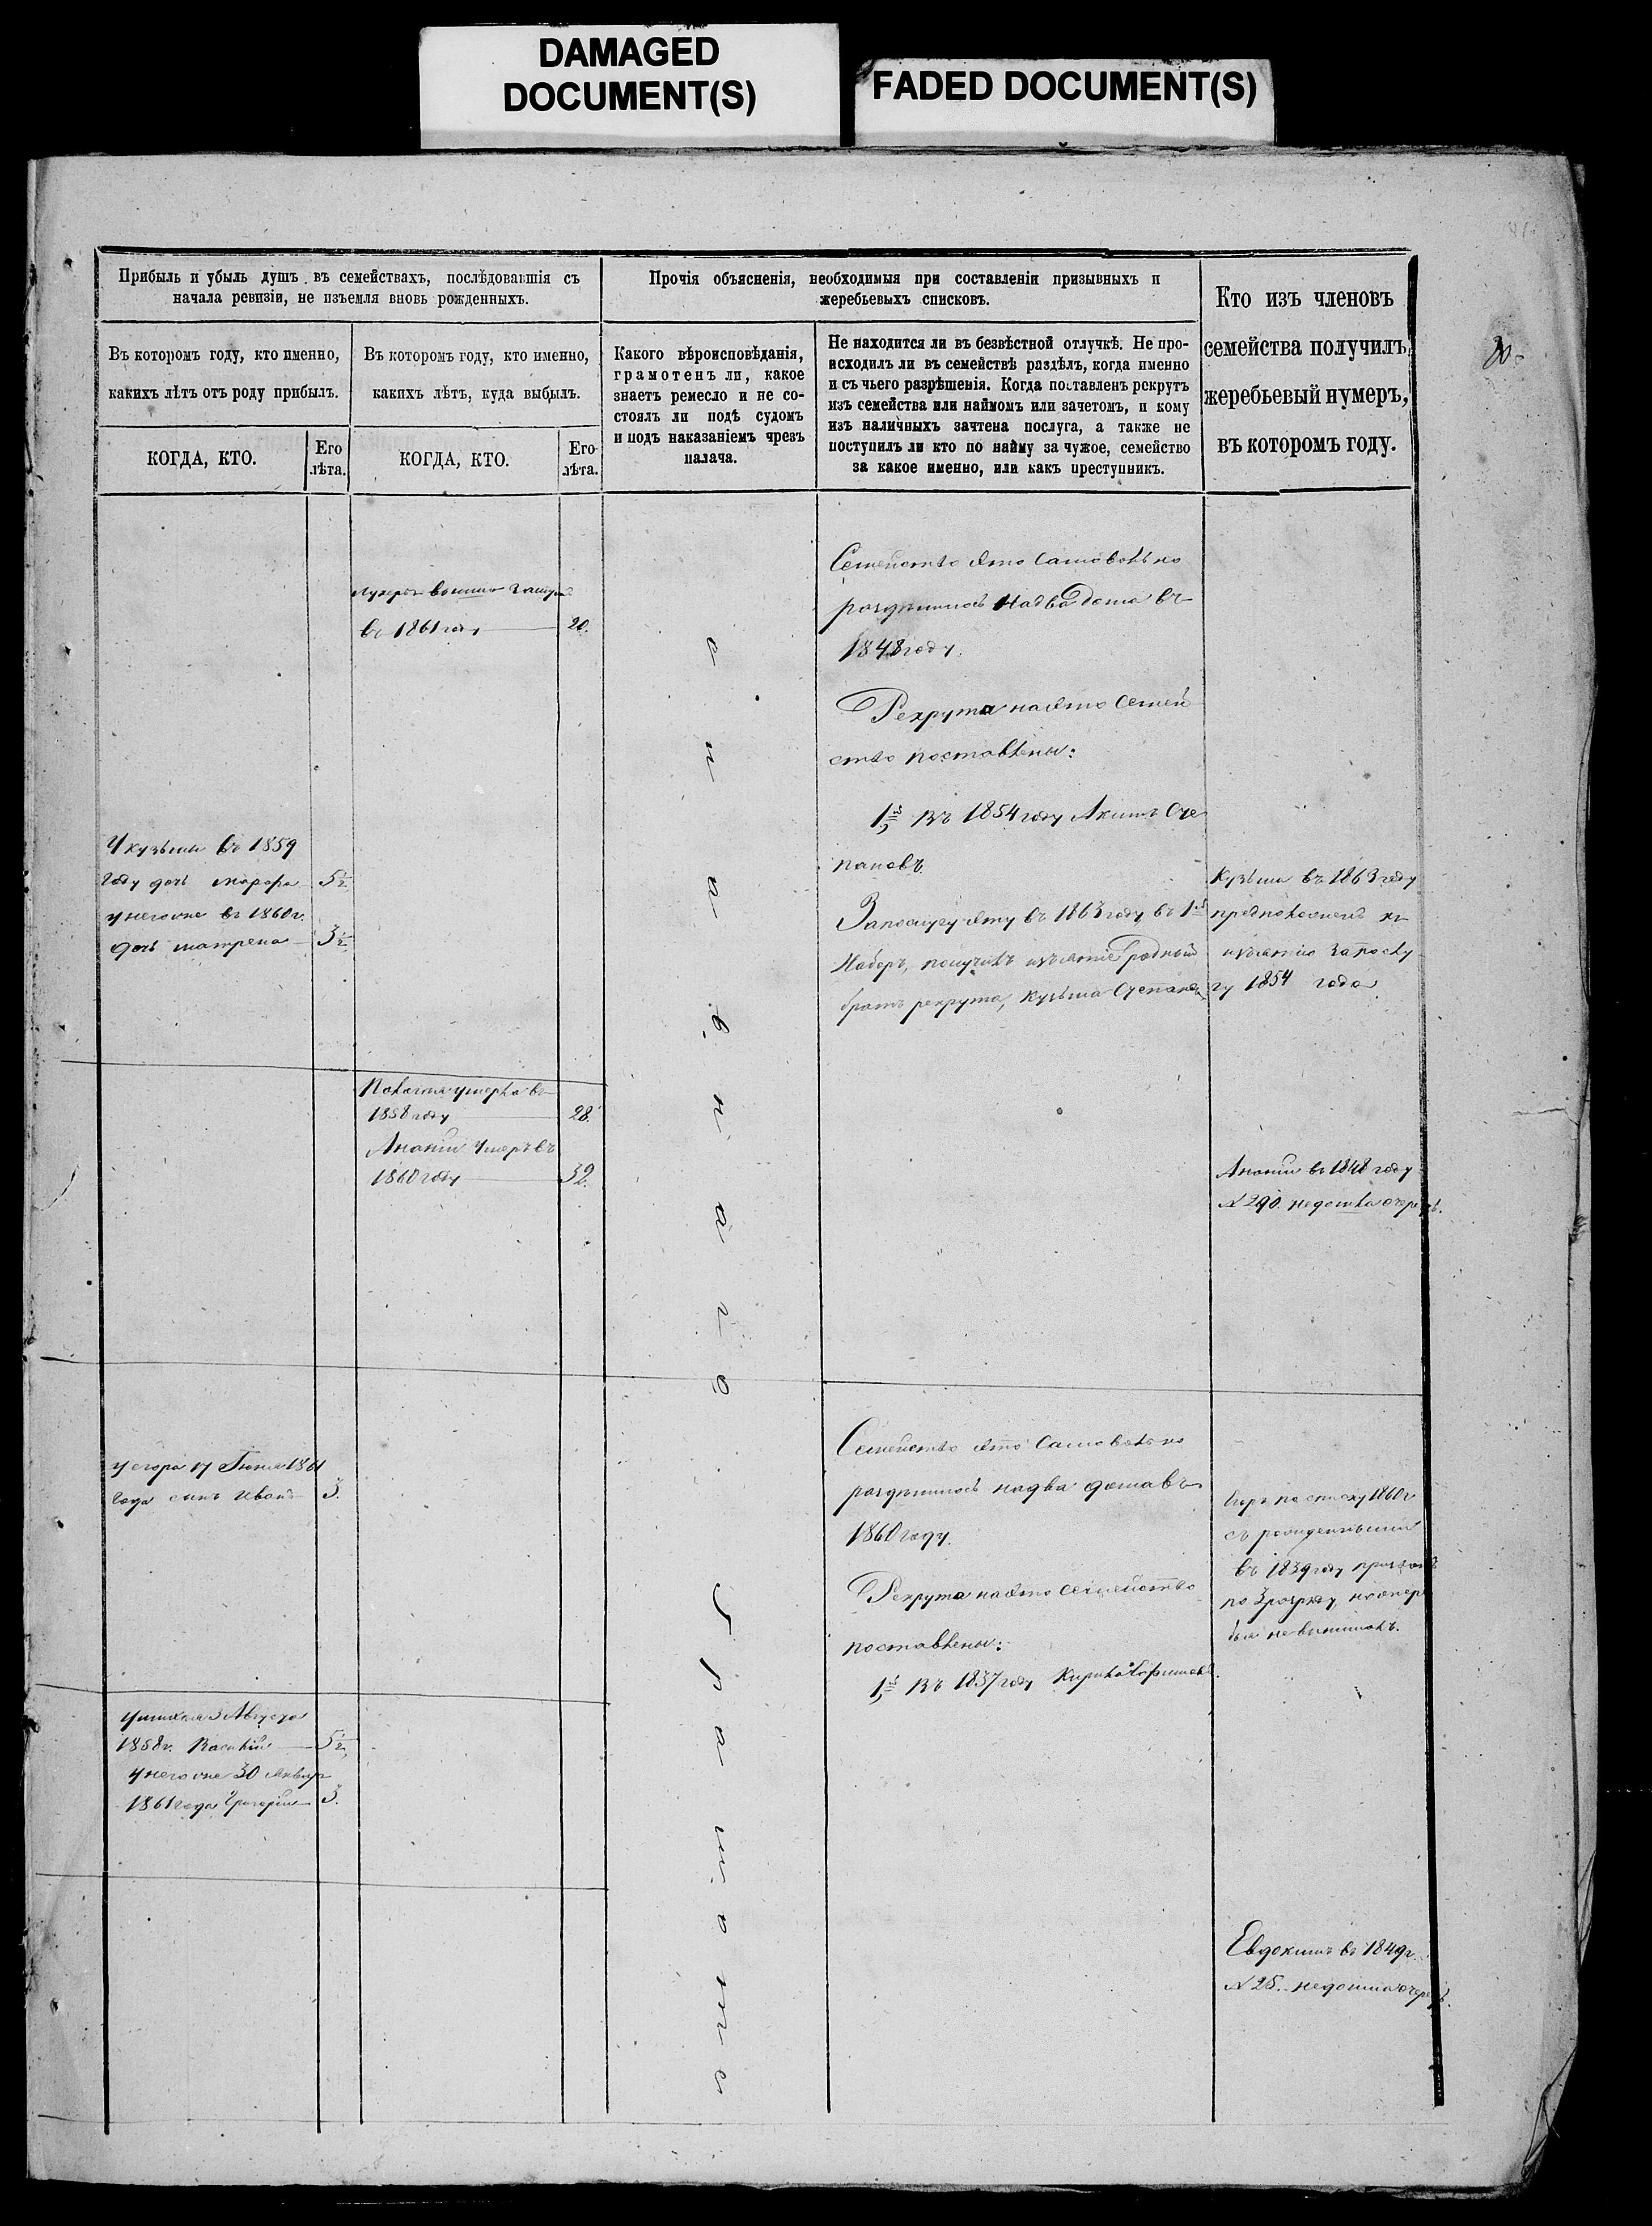 DAMAGED
DOCUMENT(S)
FADED DOCUMENT(S)
Прибыль и убыль душъ въ семействахъ, послѣдовавшія съ
начала ревизіи, не изъемля вновь рожденныхъ.
Въ которомъ году, кто именно,
какихъ лѣтъ отъ роду прибылъ.
КОГДА, КТО.
Его
лѣта.
Въ которомъ году, кто именно,
какихъ лѣтъ, куда выбылъ.
КОГДА, КТО.
Его
лѣта.
Прочія объясненія, необходимыя при составленіи призывныхъ и
жеребьевыхъ списковъ.
Какого вѣроисповѣданія,
грамотенъ ли, какое
знаетъ ремесло и не со-
стоялъ ли подъ судомъ
и подъ наказаніемъ чрезъ
палача.
Не находится ли въ безвѣстной отлучкѣ. Не про-
исходилъ ли въ семействѣ раздѣлъ, когда именно
и съ чьего разрѣшенія. Когда поставленъ рекрутъ
изъ семейства или наймомъ или зачетомъ, и кому
изъ наличныхъ зачтена послуга, а также не
поступилъ ли кто по найму за чужое, семейство
за какое именно, или какъ преступникъ.
Кто изъ членовъ
семейства получилъ
жеребьевый нумеръ,
въ которомъ году.
вышла замуж
въ 1861 году 20.
Семейство это самовольно
раздѣлилось на два дома въ
1848 году.
Рекрута на это семей
ство поставлены:
1й Въ 1854 году Акимъ Сте
пановъ.
За послугу эту въ 1863 году въ 1й
Наборъ, получилъ изъятіе родный
братъ рекрута, Кузьма Степановъ
У кузьмы въ 1859
году дочь 5½
у него же въ 1860 г.
дочь матрена 3½
Кузьма въ 1863 году
къ
изъятію за послу
гу 1854 года
Пелагея умерла въ
1858 году 28.
Ананій умеръ въ
1860 году 32.
Ананій въ 1848 году
№ 290. не дошла очередь.
у егора 17 Іюня 1861
года сынъ Иванъ 3.
Семейство это самовольно
раздѣлилось на два дома въ
1860 году.
Рекрута на это семейство
поставлены:
1й Въ 1837 году
Егоръ по списку 1860 г
съ
въ 1839 году
по 3 разряду,
былъ не вынималъ.
3 Августа
1858 г. Василій 5½
у него же 30 Январ
1861 года Григорій 3.
Евдокимъ въ 1849 г.
№ 25. не дошла очередь.